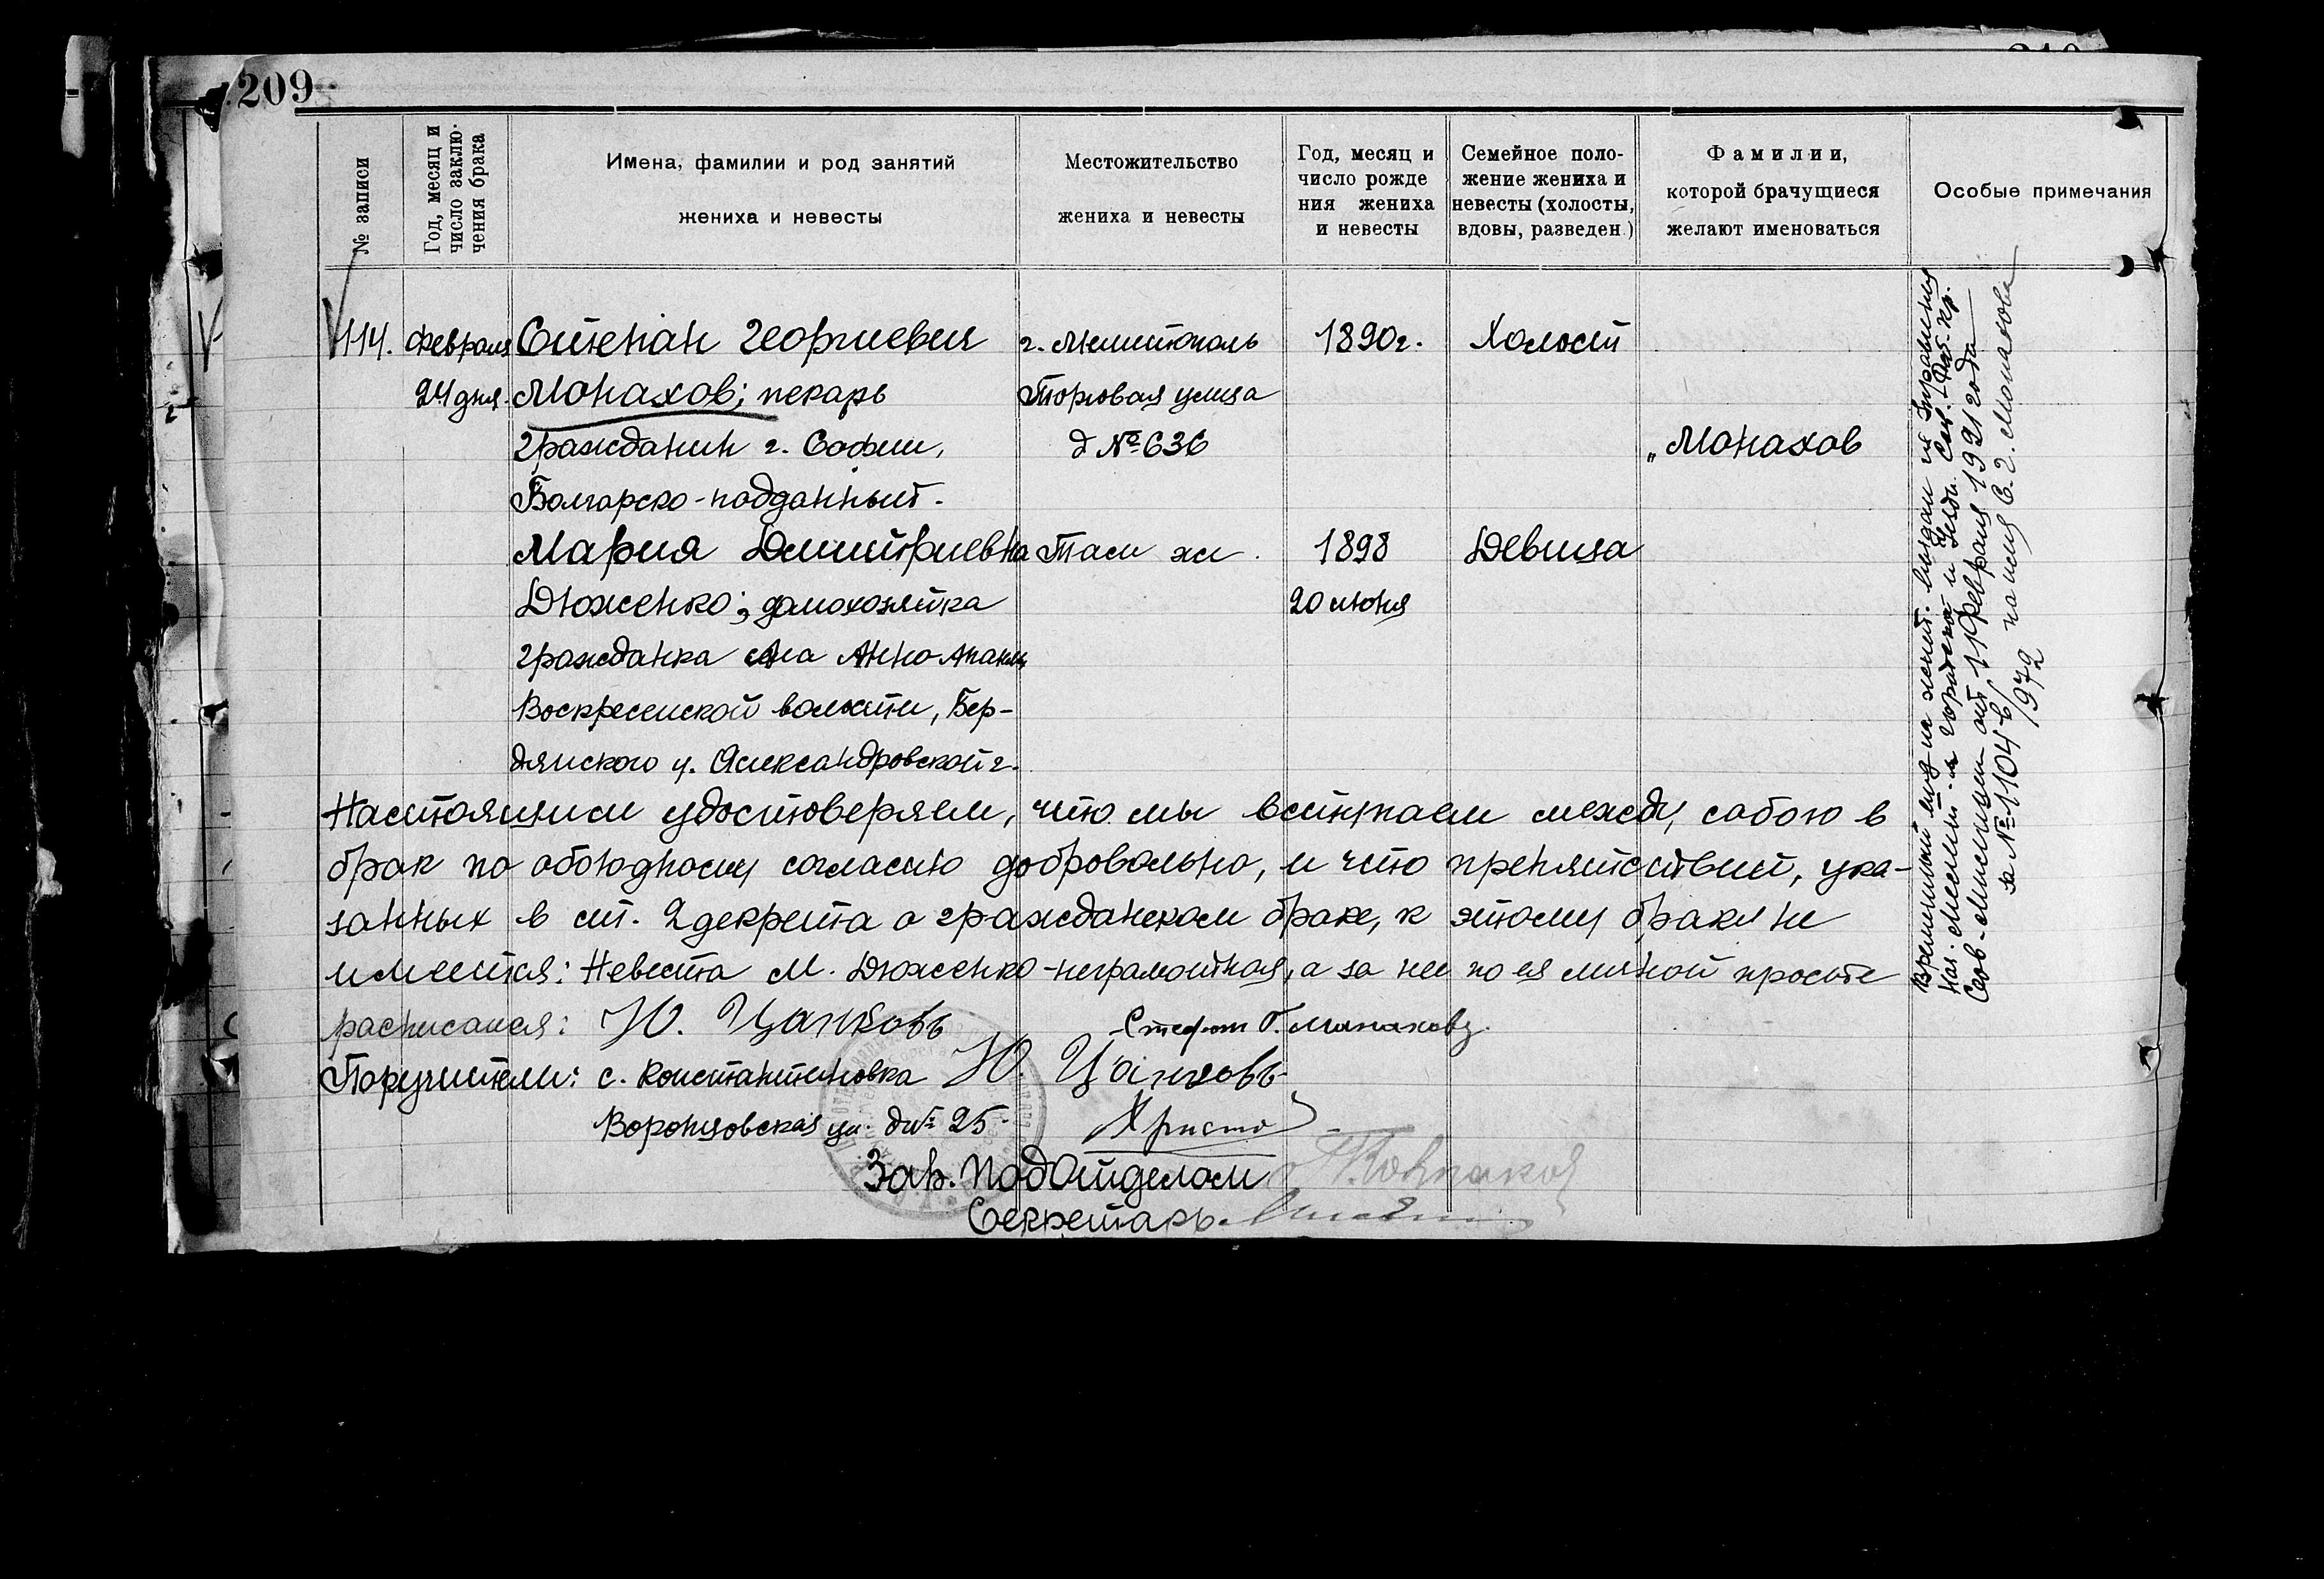 209
№ записи
Год, месяц и число заклю-чения брака
Имена, фамилии и род занятий
жениха и невесты
Местожительство
жениха и невесты
Год, месяц и
число рожде
ния жениха
и невесты
Семейное поло-
жение жениха и
невесты (холосты,
вдовы, разведен.)
Фамилии,
которой брачущиеся
желают именоваться
Особые примечания
114. Февраля Степан Георгиевич г. Мелитополь 1890г. Холост
24 дня. Монахов; пекарь Торговая улица
гражданин г. Софии, д № 636 „Монахов
Болгарско-подданный.
Мария Дмитриевна Там же. 1898 Девица
Дюженко; домохозяйка 20 июня
гражданка села Анно-
Воскресенской волости, Бер-
дянского у. Александровской г.
Настоящим удостоверяем, что мы вступаем между собою в
брак по обоюдному согласию добровольно, и что препятствий, ука-
занных в ст. 2 декрета о гражданском браке, к этому браку не
имеется: Невеста М. Дюженко-неграмотная, а за нее по ея личной просьбе
расписался: Ю. Цанковъ Стефан Г.
Поручители: с. Константиновка Ю. Цанковъ
Воронцовская ул. д № 25. Христо
Зав. Подотделом
Секретарь.
Временный вид на жит. выдан из Управления
Нач. Милит. городской и Уездн. Сов. Раб. Кр.
Сов. Милиции от 11 февраля 1921 года
за № 1104 в/1972 на имя С. Г. Монахова